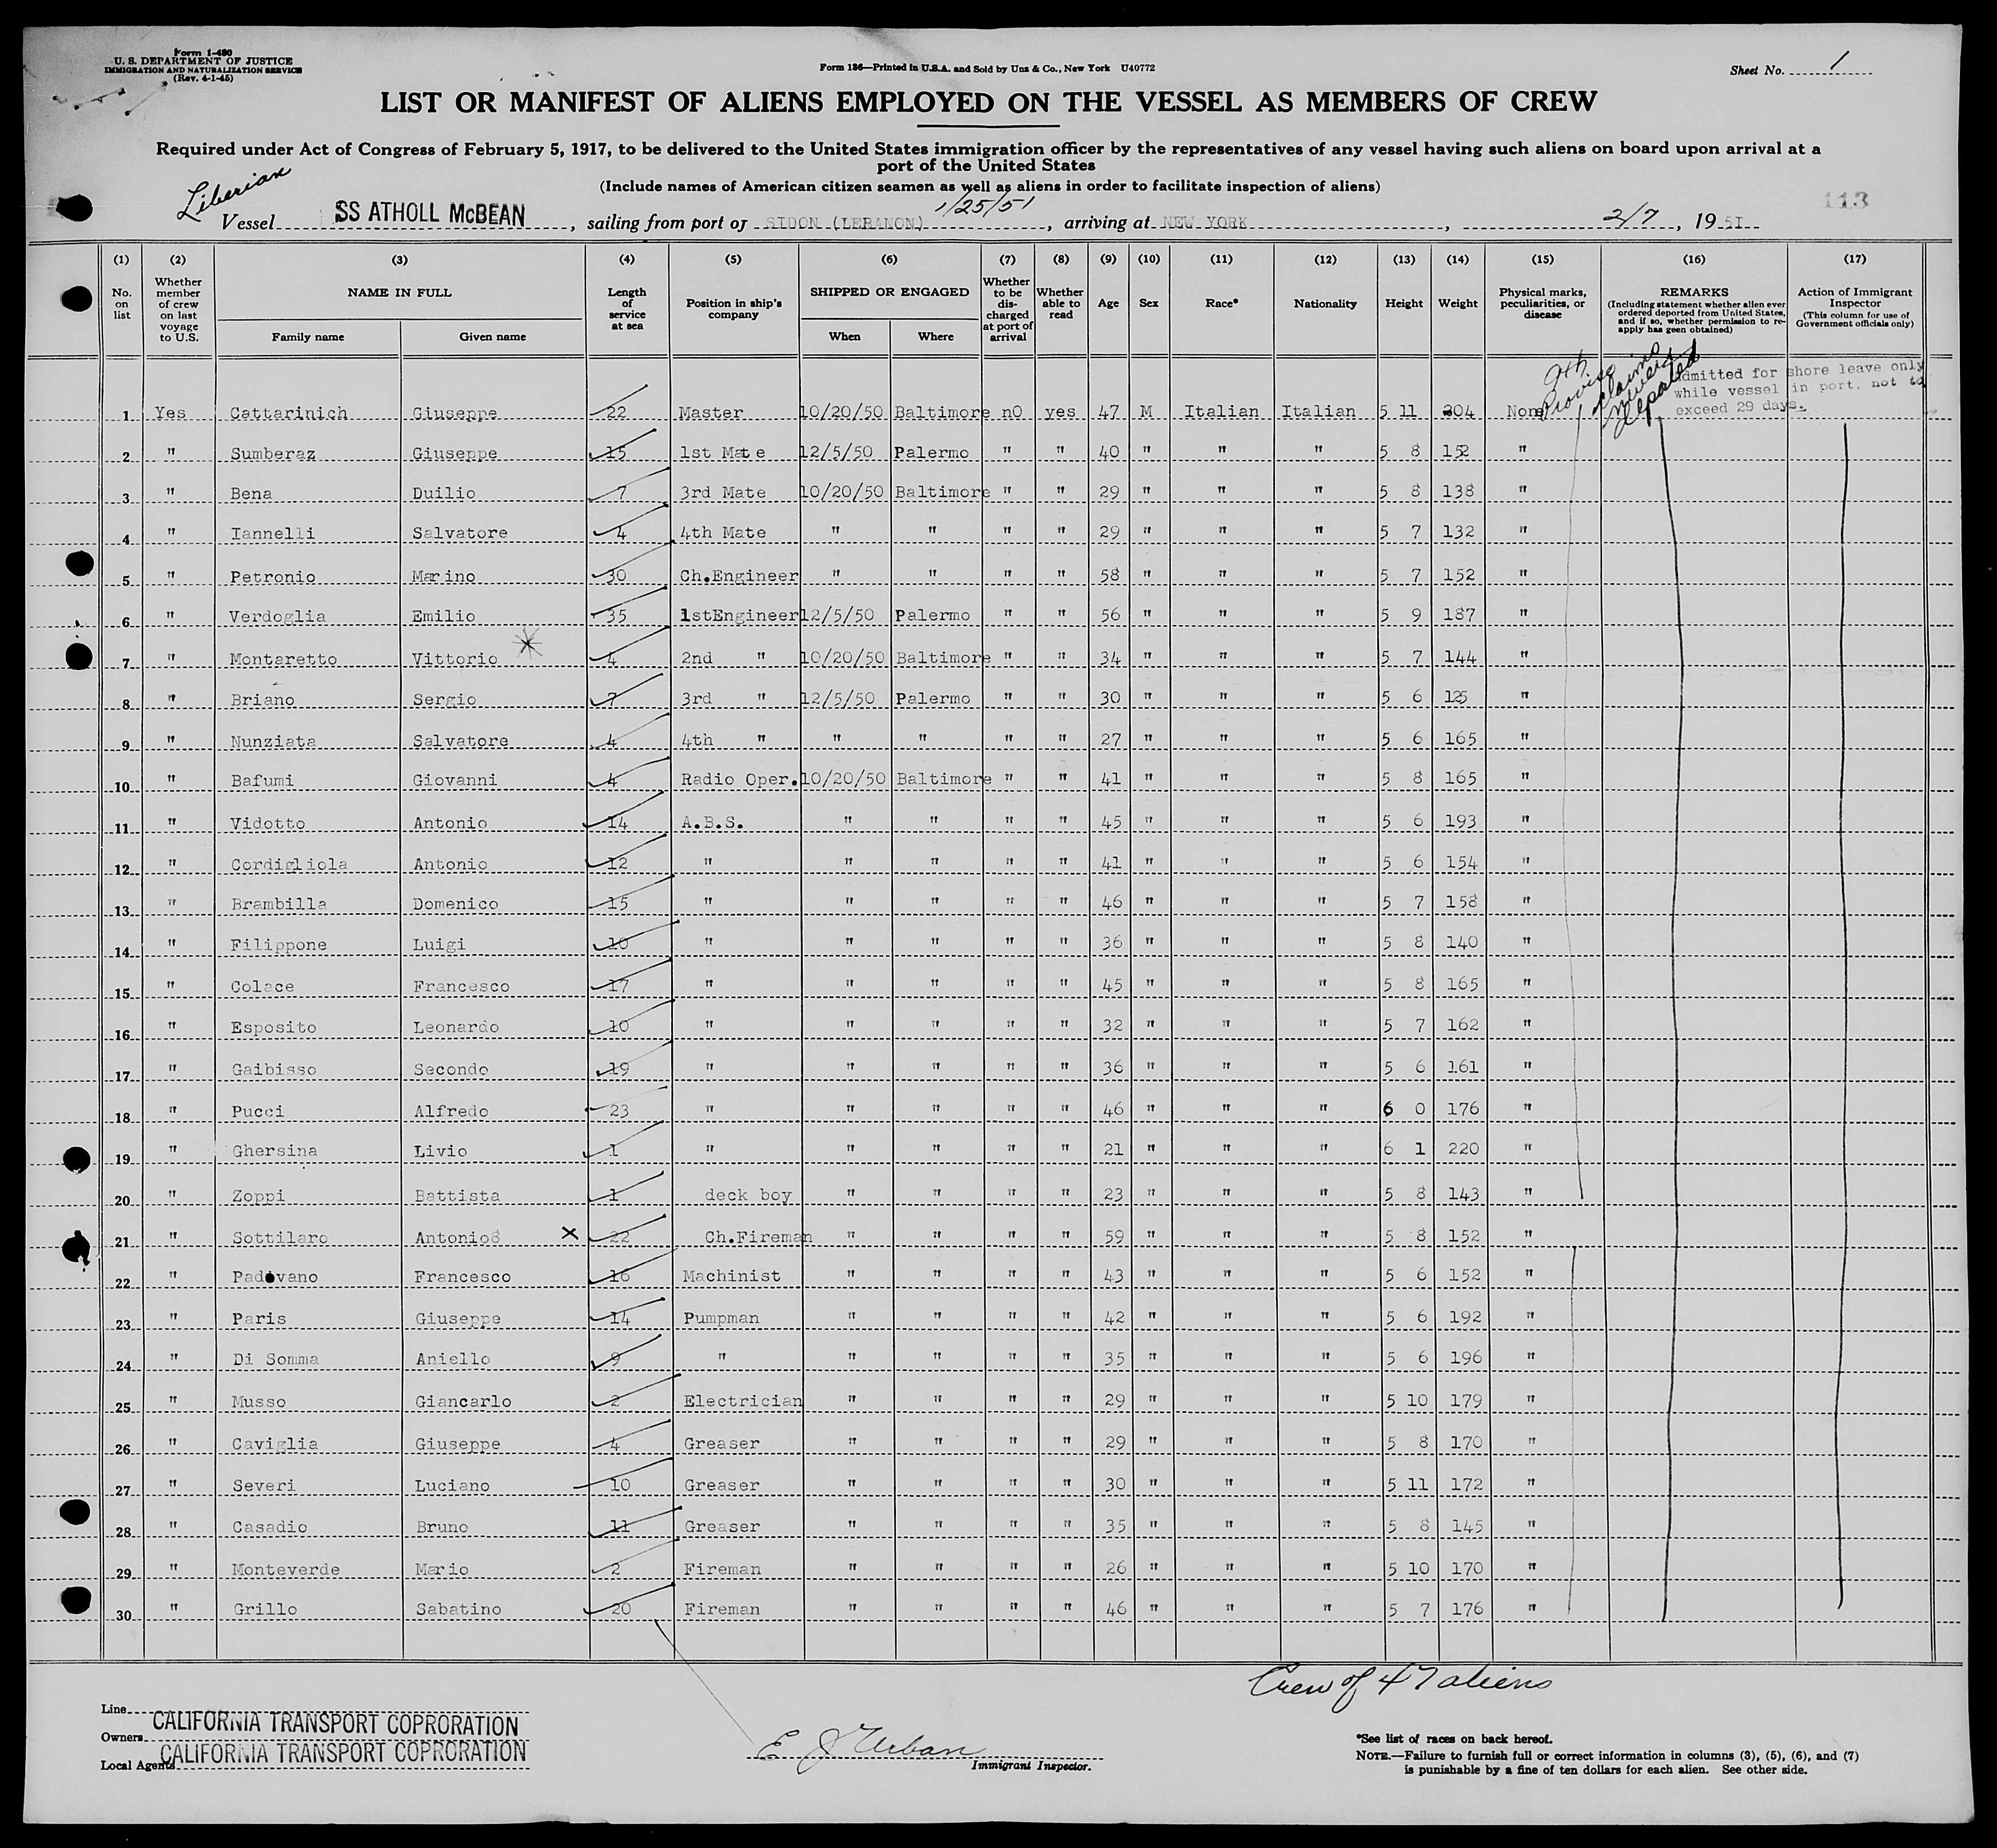 Form 1-480
U. S. DEPARTMENT OF JUSTICE
IMMIGRATION AND NATURALIZATION SERVICE
(Rev. 4-1-45)
Form 136—Printed in U.S.A. and Sold by Unz & Co., New York U40772
Sheet No. 1
LIST OR MANIFEST OF ALIENS EMPLOYED ON THE VESSEL AS MEMBERS OF CREW
Required under Act of Congress of February 5, 1917, to be delivered to the United States immigration officer by the representatives of any vessel having such aliens on board upon arrival at a
port of the United States
(Include names of American citizen seamen as well as aliens in order to facilitate inspection of aliens)
Liberian
1/25/51
113
Vessel SS ATHOLL McBEAN, sailing from port of SIDON (LEBANON), arriving at NEW YORK, 2/7, 1951
(1) (2) (3) (4) (5) (6) (7) (8) (9) (10) (11) (12) (13) (14) (15) (16) (17)
No. on list
Whether member of crew on last voyage to U.S.
NAME IN FULL
Family name
Given name
Length of service at sea
Position in ship's company
SHIPPED OR ENGAGED
When
Where
Whether to be discharged at port of arrival
Whether able to read
Age
Sex
Race*
Nationality
Height
Weight
Physical marks, peculiarities, or disease
REMARKS
(Including statement whether alien ever ordered deported from United States, and if so, whether permission to re-apply has geen obtained)
Action of Immigrant Inspector
(This column for use of Government officials only)
9th Proviso
claims never deported
admitted for shore leave only
while vessel in port, not to
exceed 29 days.
1 Yes Cattarinich Giuseppe 22 Master 10/20/50 Baltimore nO yes 47 M Italian Italian 5 11 204 None
2 " Sumberaz Giuseppe 15 1st Mate 12/5/50 Palermo " " 40 " " " 5 8 152 "
3 " Bena Duilio 7 3rd Mate 10/20/50 Baltimore " " 29 " " " 5 8 138 "
4 " Iannelli Salvatore 4 4th Mate " " " " 29 " " " 5 7 132 "
5 " Petronio Marino 30 Ch.Engineer " " " " 58 " " " 5 7 152 "
6 " Verdoglia Emilio 35 1stEngineer 12/5/50 Palermo " " 56 " " " 5 9 187 "
7 " Montaretto Vittorio 4 2nd " 10/20/50 Baltimore " " 34 " " " 5 7 144 "
8 " Briano Sergio 7 3rd " 12/5/50 Palermo " " 30 " " " 5 6 125 "
9 " Nunziata Salvatore 4 4th " " " " " 27 " " " 5 6 165 "
10 " Bafumi Giovanni 4 Radio Oper. 10/20/50 Baltimore " " 41 " " " 5 8 165 "
11 " Vidotto Antonio 14 A.B.S. " " " " 45 " " " 5 6 193 "
12 " Cordigliola Antonio 12 " " " " " 41 " " " 5 6 154 "
13 " Brambilla Domenico 15 " " " " " 46 " " " 5 7 158 "
14 " Filippone Luigi 10 " " " " " 36 " " " 5 8 140 "
15 " Colace Francesco 17 " " " " " 45 " " " 5 8 165 "
16 " Esposito Leonardo 10 " " " " " 32 " " " 5 7 162 "
17 " Gaibisso Secondo 19 " " " " " 36 " " " 5 6 161 "
18 " Pucci Alfredo 23 " " " " " 46 " " " 6 0 176 "
19 " Ghersina Livio 1 " " " " " 21 " " " 6 1 220 "
20 " Zoppi Battista 1 deck boy " " " " 23 " " " 5 8 143 "
21 " Sottilaro Antonio X 22 Ch.Fireman " " " " 59 " " " 5 8 152 "
22 " Padovano Francesco 16 Machinist " " " " 43 " " " 5 6 152 "
23 " Paris Giuseppe 14 Pumpman " " " " 42 " " " 5 6 192 "
24 " Di Somma Aniello 9 " " " " " 35 " " " 5 6 196 "
25 " Musso Giancarlo 2 Electrician " " " " 29 " " " 5 10 179 "
26 " Caviglia Giuseppe 4 Greaser " " " " 29 " " " 5 8 170 "
27 " Severi Luciano 10 Greaser " " " " 30 " " " 5 11 172 "
28 " Casadio Bruno 11 Greaser " " " " 35 " " " 5 8 145 "
29 " Monteverde Mario 2 Fireman " " " " 26 " " " 5 10 170 "
30 " Grillo Sabatino 20 Fireman " " " " 46 " " " 5 7 176 "
Crew of 47 aliens
Line CALIFORNIA TRANSPORT COPRORATION
Owners
Local Agents CALIFORNIA TRANSPORT COPRORATION
E J Urban
Immigrant Inspector.
*See list of races on back hereof.
NOTE.—Failure to furnish full or correct information in columns (3), (5), (6), and (7)
is punishable by a fine of ten dollars for each alien. See other side.